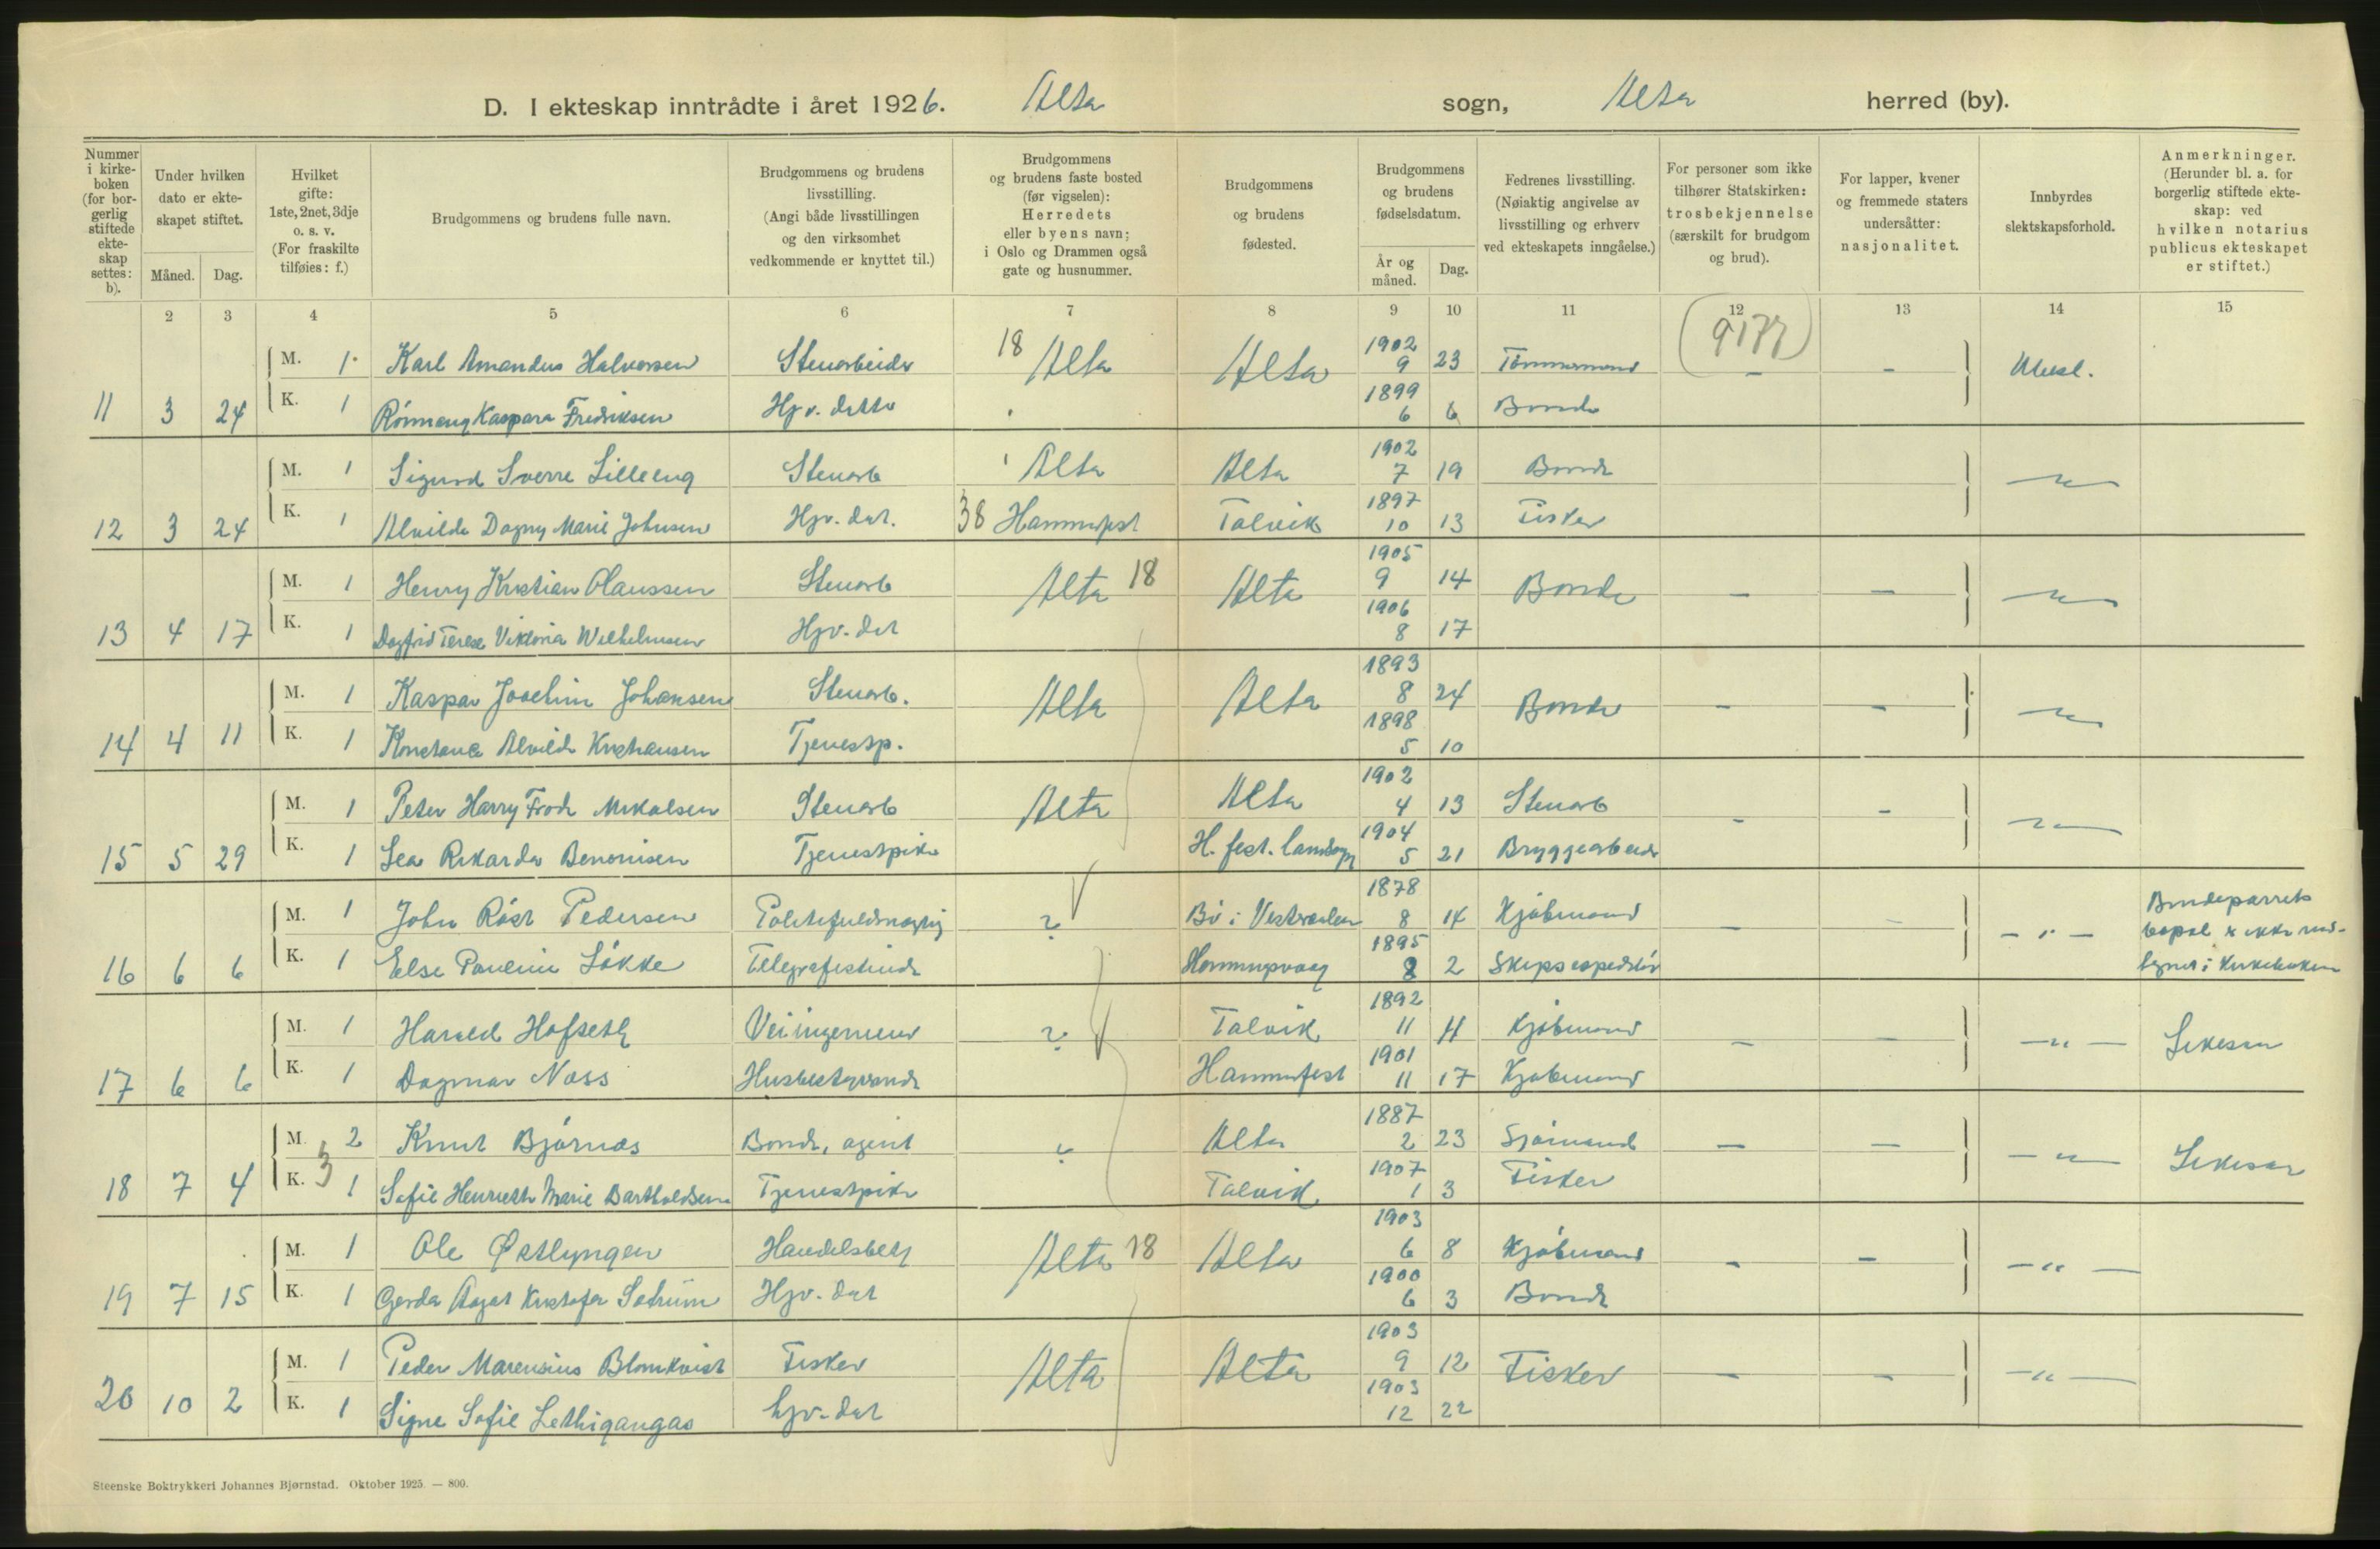 D. I ekteskap inntrådte i året 1926. Alta sogn, Alta herred (by).
Nummer i kirkeboken (for borgerlig stiftede ekteskap settes: b).
Under hvilken dato er ekteskapet stiftet.
Måned. Dag.
Hvilket gifte: 1ste, 2net, 3dje o. s. v. (For fraskilte tilføies: f.)
Brudgommens og brudens fulle navn.
Brudgommens og brudens livsstilling. (Angi både livsstillingen og den virksomhet vedkommende er knyttet til.)
Brudgommens og brudens faste bosted (før vigselen): Herredets eller byens navn; i Oslo og Drammen også gate og husnummer.
Brudgommens og brudens fødested.
Brudgommens og brudens fødselsdatum.
År og måned. Dag.
Fedrenes livsstilling. (Nøiaktig angivelse av livsstilling og erhverv ved ekteskapets inngåelse.)
For personer som ikke tilhører Statskirken: trosbekjennelse (særskilt for brudgom og brud).
For lapper, kvener og fremmede staters undersåtter: nasjonalitet.
Innbyrdes slektskapsforhold.
Anmerkninger. (Herunder bl. a. for borgerlig stiftede ekteskap: ved hvilken notarius publicus ekteskapet er stiftet.)
2 3 4 5 6 7 8 9 10 11 12 13 14 15
(9177)
M. 1 Karl Amandus Halvorsen Stenarbeider 18 Alta Alta 1902 9 23 Tömmermand - -
11 3 24 K. 1 Rönnaug Kaspara Fredriksen Hjv. datter 1899 6 6 Bonde
M. 1 Sigurd Sverre Lilleeng Stenarb Alta Alta 1902 7 19 Bonde -"-
12 3 24 K. 1 Alvilde Dagny Marie Johnsen Hjv. dat. 38 Hammerfest Talvik 1897 10 13 Fisker
M. 1 Henry Kristian Olaussen Stenarb Alta 18 Alta 1905 9 14 Bonde - - -"-
13 4 17 K. 1 Dagfrid Terese Viktoria Wilhelmsen Hjv. dat 1906 8 17
M. 1 Kaspar Joachim Johansen Stenarb. Alta Alta 1893 8 24 Bonde - - -"-
14 4 11 K. 1 Konstance Alvilde Kristiansen Tjenestp. 1898 5 10
M. 1 Peter Harry Frode Mikalsen Stenarb Alta Alta 1902 4 13 Stenarb - - -"-
15 5 29 K. 1 Lea Rikarda Benonisen Tjenestpike H. fest. landsogn 1904 5 21 Bryggearbeider
M. 1 John Röst Pedersen Politifuldmægtig ? Bö i Vesteraalen 1878 8 14 Kjöbmand - - -"- Brudeparrets
16 6 6 K. 1 Else Pauline Lökke Telegrafistinde Honningsvaag 1895 8 2 Skipsexpeditör bopæl er ikke ind-
tegnet i Kirkeboken
M. 1 Harald Hofseth Veiingeniør ? Talvik 1892 11 11 Kjöbmand - - -"- Likesaa
17 6 6 K. 1 Dagmar Næss Husbestyrerinde Hammerfest 1901 11 17 Kjöbmand
M. 2 Knut Björnæs Bonde, agent ? Alta 1887 2 23 Sjömand - - -"- Likesaa
18 7 4 K. 3 1 Sofie Henriette Marie Bartholdsen Tjenestpike Talvik 1907 1 3 Fisker
M. 1 Ole Østlyngen Handelsbetj Alta 18 Alta 1903 6 8 Kjöbmand - - -"-
19 7 15 K. 1 Gerda Aagot Kristofa Hjv. dat 1900 6 3 Bonde
M. 1 Peder Marensius Blomkvist Fisker Alta Alta 1903 9 12 Fisker - - -"-
20 10 2 K. 1 Signe Sofie Lethigangas hjv. dat 1903 12 22
Steenske Boktrykkeri Johannes Bjørnstad. Oktober 1925 — 800.